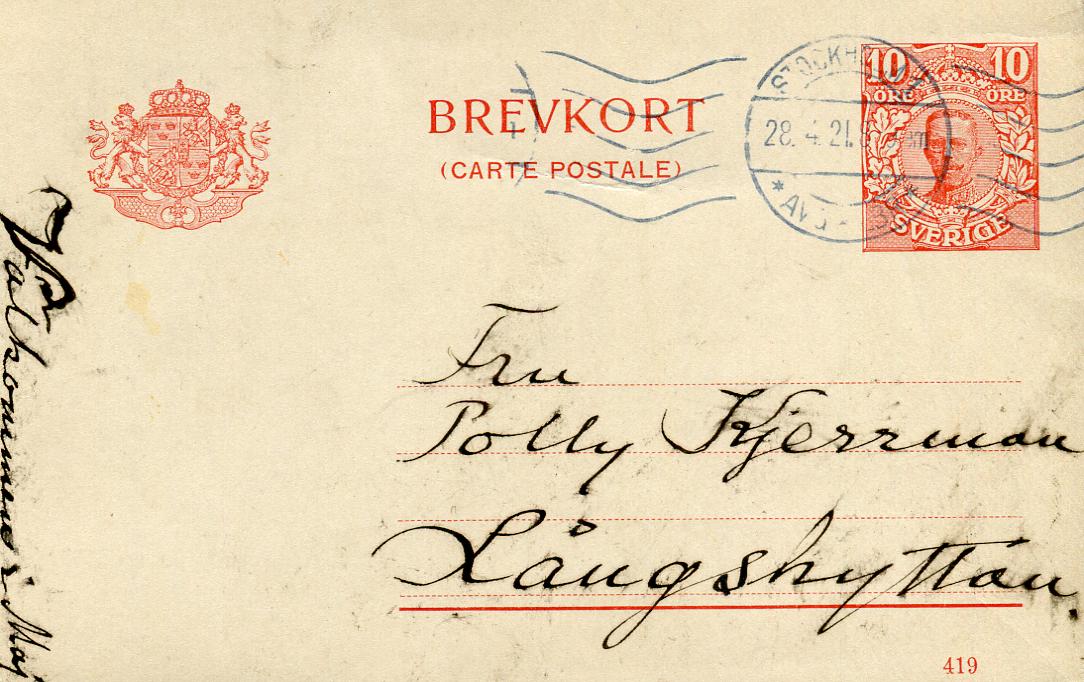 BREVKORT
(CARTE POSTALE)
STOCKHOLM
28. 4. 21
* AVG
10 10
ÖRE ÖRE
SVERIGE
Fru
Polly Kjerrman
Långshyttan.
Välkommen i Maj
419